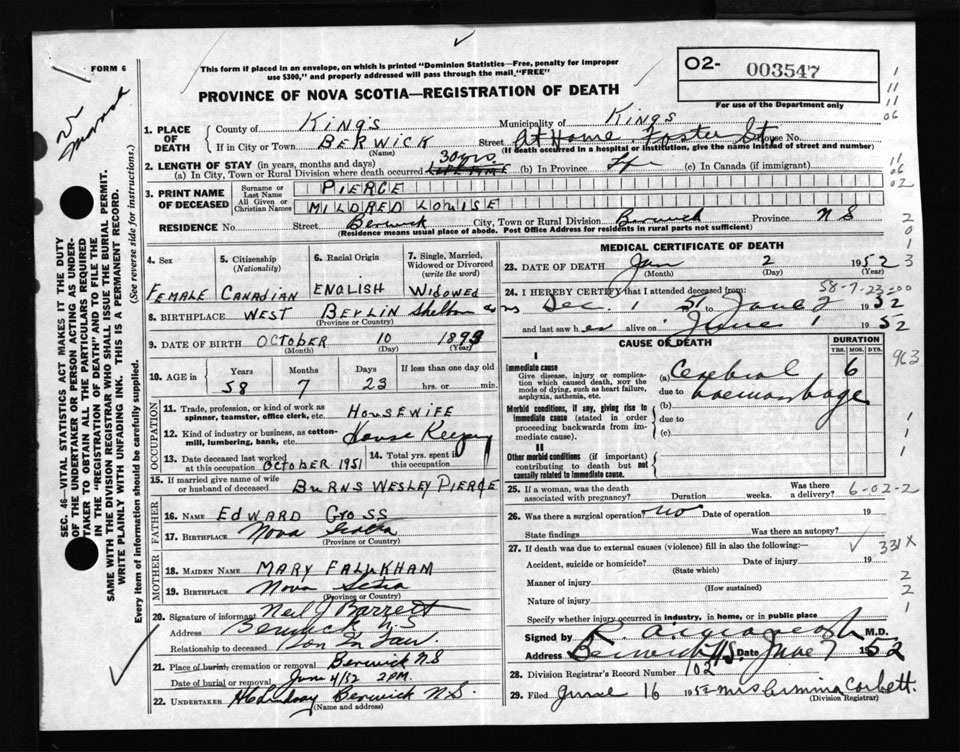 FORM 6
This form if placed in an envelope, on which is printed "Dominion Statistics—Free, penalty for improper
use $300," and properly addressed will pass through the mail "FREE"
O2- 003547
For use of the Department only
PROVINCE OF NOVA SCOTIA—REGISTRATION OF DEATH
1. PLACE OF DEATH
County of KINGS Municipality of KINGS
If in City or Town BERWICK Street At Home Foster St House No.
(Name) (If death occurred in a hospital or institution, give the name instead of street and number)
2. LENGTH OF STAY (in years, months and days)
(a) In City, Town or Rural Division where death occurred 30 yrs LIFE TIME (b) In Province Life (c) In Canada (if immigrant)
3. PRINT NAME OF DECEASED
Surname or Last Name PIERCE
All Given or Christian Names MILDRED LOUISE
RESIDENCE No. Street Berwick City, Town or Rural Division Berwick Province N S
(Residence means usual place of abode. Post Office Address for residents in rural parts not sufficient)
4. Sex FEMALE
5. Citizenship (Nationality) CANADIAN
6. Racial Origin ENGLISH
7. Single, Married, Widowed or Divorced (write the word) WIDOWED
8. BIRTHPLACE WEST BERLIN Shelburn Co
(Province or Country)
9. DATE OF BIRTH OCTOBER 10 1893
(Month) (Day) (Year)
10. AGE in Years Months Days If less than one day old
58 7 23 hrs. or min.
OCCUPATION
11. Trade, profession, or kind of work as spinner, teamster, office clerk, etc. HOUSEWIFE
12. Kind of industry or business, as cotton-mill, lumbering, bank, etc. House Keeping
13. Date deceased last worked at this occupation OCTOBER 1951
14. Total yrs. spent in this occupation
15. If married give name of wife or husband of deceased BURNS WESLEY PIERCE
FATHER
16. NAME EDWARD GROSS
17. BIRTHPLACE Nova Scotia
(Province or Country)
MOTHER
18. MAIDEN NAME MARY FALUKHAM
19. BIRTHPLACE Nova Scotia
(Province or Country)
20. Signature of informant Neil J Barrett
Address Berwick N.S
Relationship to deceased Son In Law.
21. Place of burial, cremation or removal Berwick N S
Date of burial or removal June 4/52 2 PM.
22. UNDERTAKER Berwick N.S.
(Name and address)
MEDICAL CERTIFICATE OF DEATH
23. DATE OF DEATH Jan 2 1952
(Month) (Day) (Year)
58-7-23-00
24. I HEREBY CERTIFY that I attended deceased from:
Dec. 1 51 to June 2 1952
and last saw her alive on June 1 1952
CAUSE OF DEATH
DURATION
YRS. MOS. DYS.
I
Immediate cause
Give disease, injury or complication which caused death, nor the mode of dying, such as heart failure, asphyxia, asthenia, etc.
(a) Cerebral 6
due to haemorrhage
Morbid conditions, if any, giving rise to immediate cause (stated in order proceeding backwards from immediate cause).
(b)
due to
(c)
II
Other morbid conditions (if important) contributing to death but not causally related to immediate cause.
25. If a woman, was the death associated with pregnancy? Duration weeks. Was there a delivery? 6-02-2
26. Was there a surgical operation? no Date of operation 19
State findings Was there an autopsy?
27. If death was due to external causes (violence) fill in also the following:— 331X
Accident, suicide or homicide? Date of injury 19
(State which)
Manner of injury
(How sustained)
Nature of injury
Specify whether injury occurred in INDUSTRY, in HOME, or in PUBLIC PLACE
Signed by M.D.
Address Berwick N.S. Date June 7 1952
28. Division Registrar's Record Number 102
29. Filed June 16 1952 Mrs Armina Corbett.
(Division Registrar)
SEC. 46—VITAL STATISTICS ACT MAKES IT THE DUTY
OF THE UNDERTAKER OR PERSON ACTING AS UNDER-
TAKER TO OBTAIN ALL THE PARTICULARS REQUIRED
IN THE "REGISTRATION OF DEATH" AND TO FILE THE
SAME WITH THE DIVISION REGISTRAR WHO SHALL ISSUE THE BURIAL PERMIT.
WRITE PLAINLY WITH UNFADING INK. THIS IS A PERMANENT RECORD.
Every item of information should be carefully supplied. (See reverse side for instructions.)